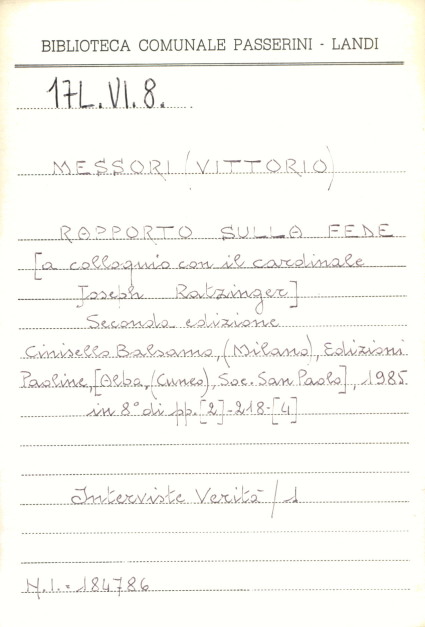 BIBLIOTECA COMUNALE PASSERINI - LANDI
17L.VI.8.
MESSORI (VITTORIO)
RAPPORTO SULLA FEDE
[a colloquio con il cardinale
Joseph Ratzinger]
Seconda edizione
Cinisello Balsamo, (Milano), Edizioni
Paoline, [Alba, (Cuneo), Soc. San Paolo], 1985
in 8° di pp. [2]-218-[4]
Interviste Verità / 1
N.I. = 184786